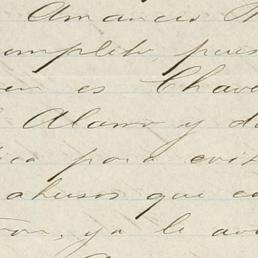 Amancio
completo, pues
es Chave
Alamo y d
por a evit
abusos que co
ya le av